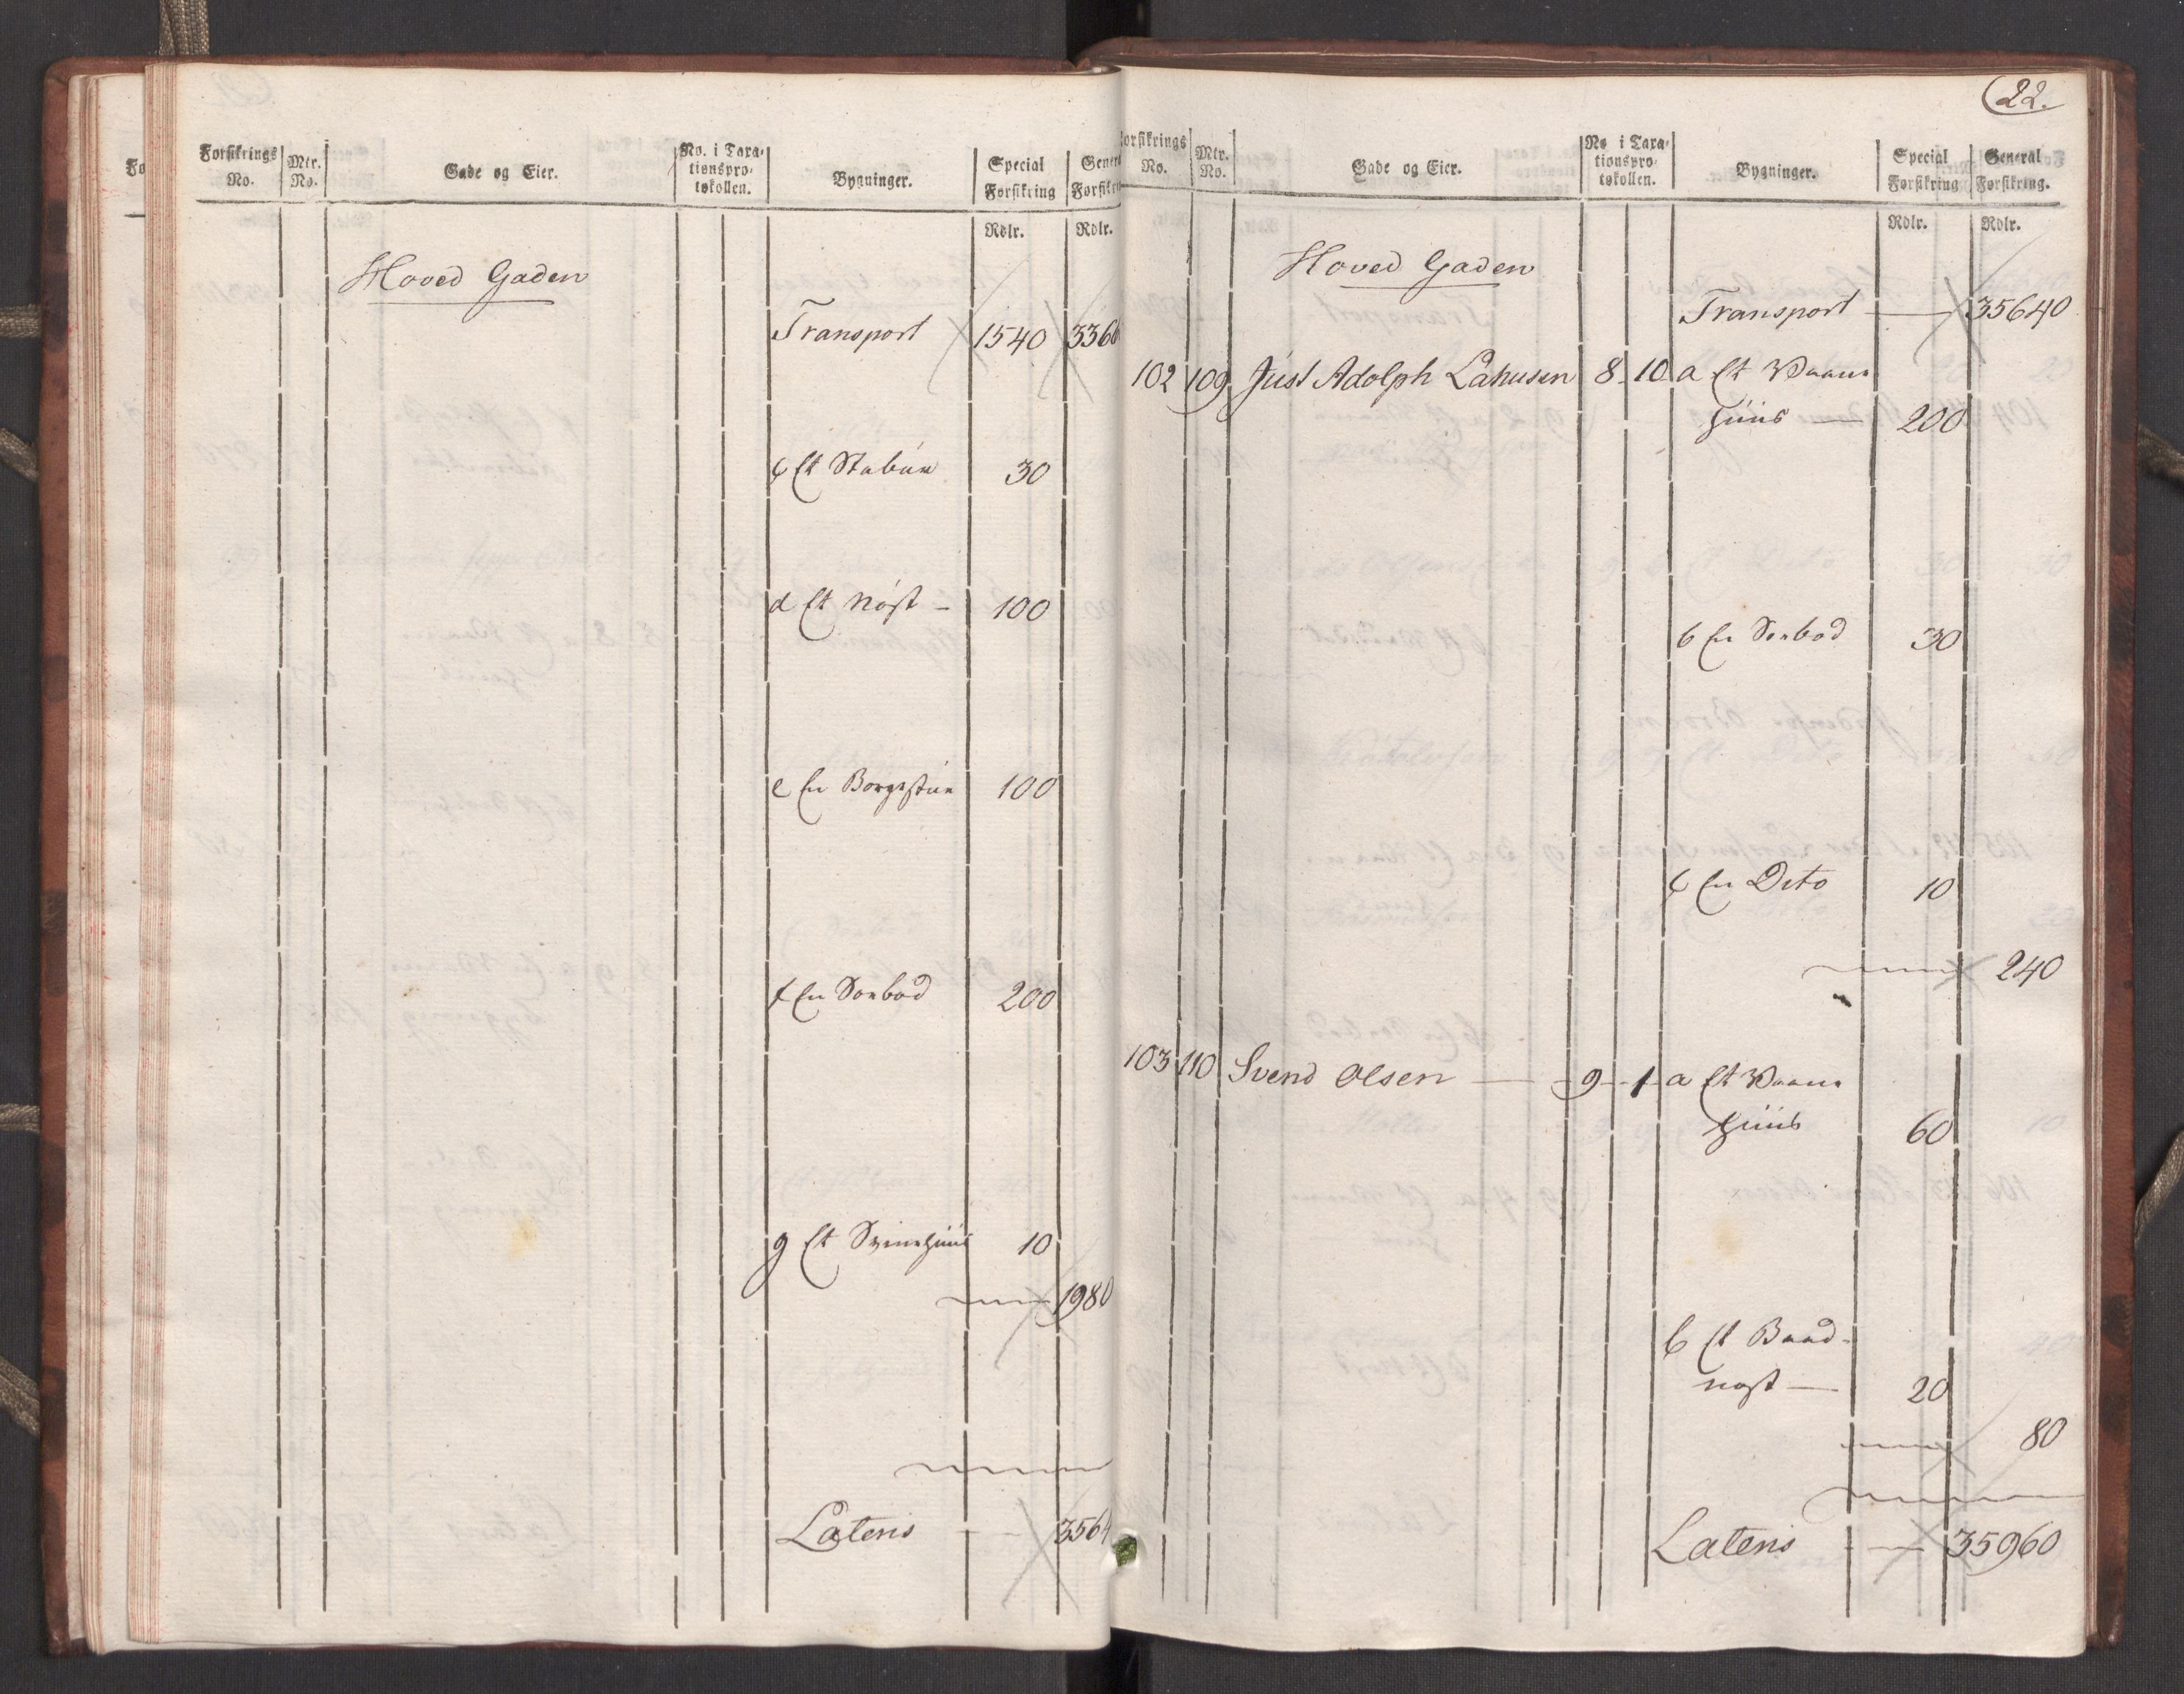 Forsikrings No.
Mtr. No.
Gade og Eier.
No. i Taxa-
tionspro-
tokollen.
Bygninger.
Special
Forsikring
Rdlr.
Rdlr.
Hoved Gaden
Transport 1540
c Et Stabur 30
d Et Nøst – 100
e En Borgestue 100
f En Søebod 200
g Et Svinehuus 10
1980
Lateris
22.
No.
Mtr. No.
Gade og Eier.
No i Taxa-
tionspro-
tokollen.
Bygninger.
Special
Forsikring
General
Forsikring.
Rdlr.
Rdlr.
Hoved Gaden
Transport — 35640
102 109 Just Adolph Lahusen 8 10 a Et Vaane
Huus — 200
b En Søebod 30
c En Dito 10
240
103 110 Svend Olsen — 9 - 1 a Et Vaane
Huus 60
b Et Baad-
nøst — 20
80
Lateris — 35960